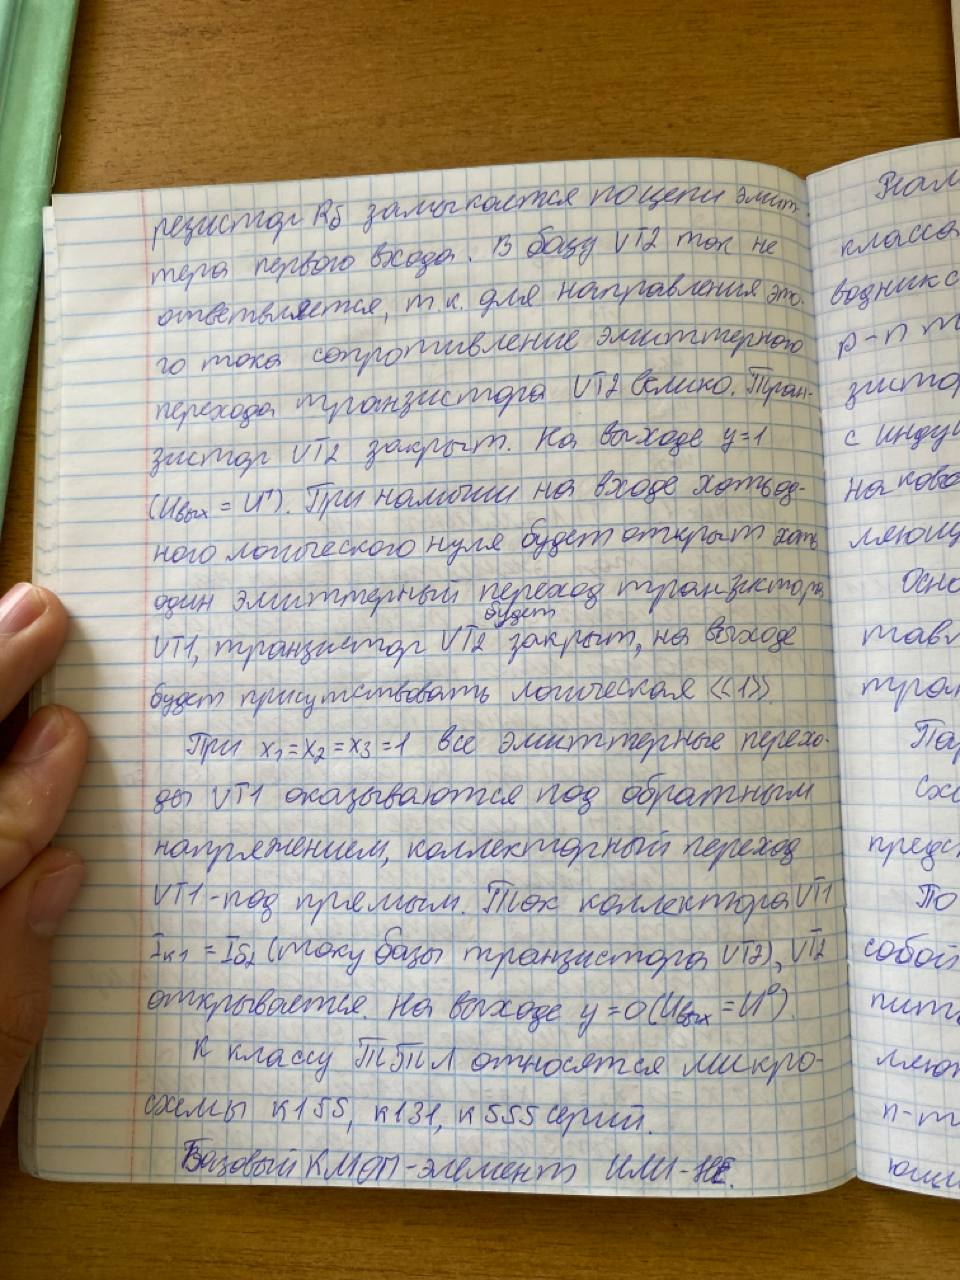 резистор Rб замыкается по цепи эмит-
тера первого входа. В базу VT2 ток не
ответвляется, т.к. для направления это-
го тока сопротивление эмиттерного
перехода транзистора VT2 велико. Тран-
зистор VT2 закрыт. На выходе y=1
(Uвых = U¹). При наличии на входе хоть од-
ного логического нуля будет открыт хоть
один эмиттерный переход транзистора
будет
VT1, транзистор VT2 закрыт, на выходе
будет присутствовать логическая <<1>>.
При x₁=x₂=x₃=1 все эмиттерные перехо-
ды VT1 оказываются под обратным
напряжением, коллекторный переход
VT1-под прямым. Ток коллектора VT1
Iк1 = Iб2 (току базы транзистора VT2), VT2
открывается. На выходе y=0 (Uвых = U⁰).
К классу ТТЛ относятся микро-
схемы К155, К131, К555 серий.
Базовый КМОП-элемент ИЛИ-НЕ.
класса
водник с
p-n
зистор
с инду
осно
тран
Схе
предс
По
собой
пита